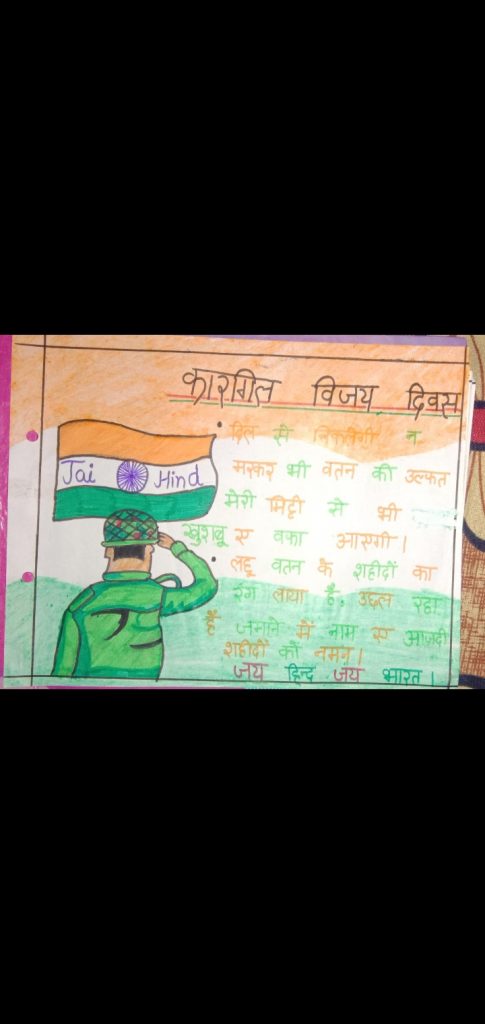 कारगिल विजय दिवस
Jai Hind
• दिल से निकलेगी न
मरकर भी वतन की उल्फत
मेरी मिट्टी से भी
खुशबू ए वफा आएगी।
• लहू वतन के शहीदों का
रंग लाया है, उछल रहा
है जमाने में नाम ए आज़दी
शहीदों को नमन।
जय हिन्द जय भारत।